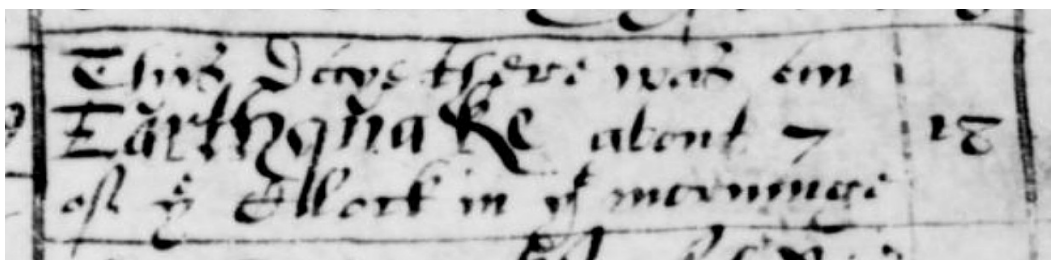 This Daye there was an
Earthquake about 7 18
of yͤ Clock in yͤ morninge